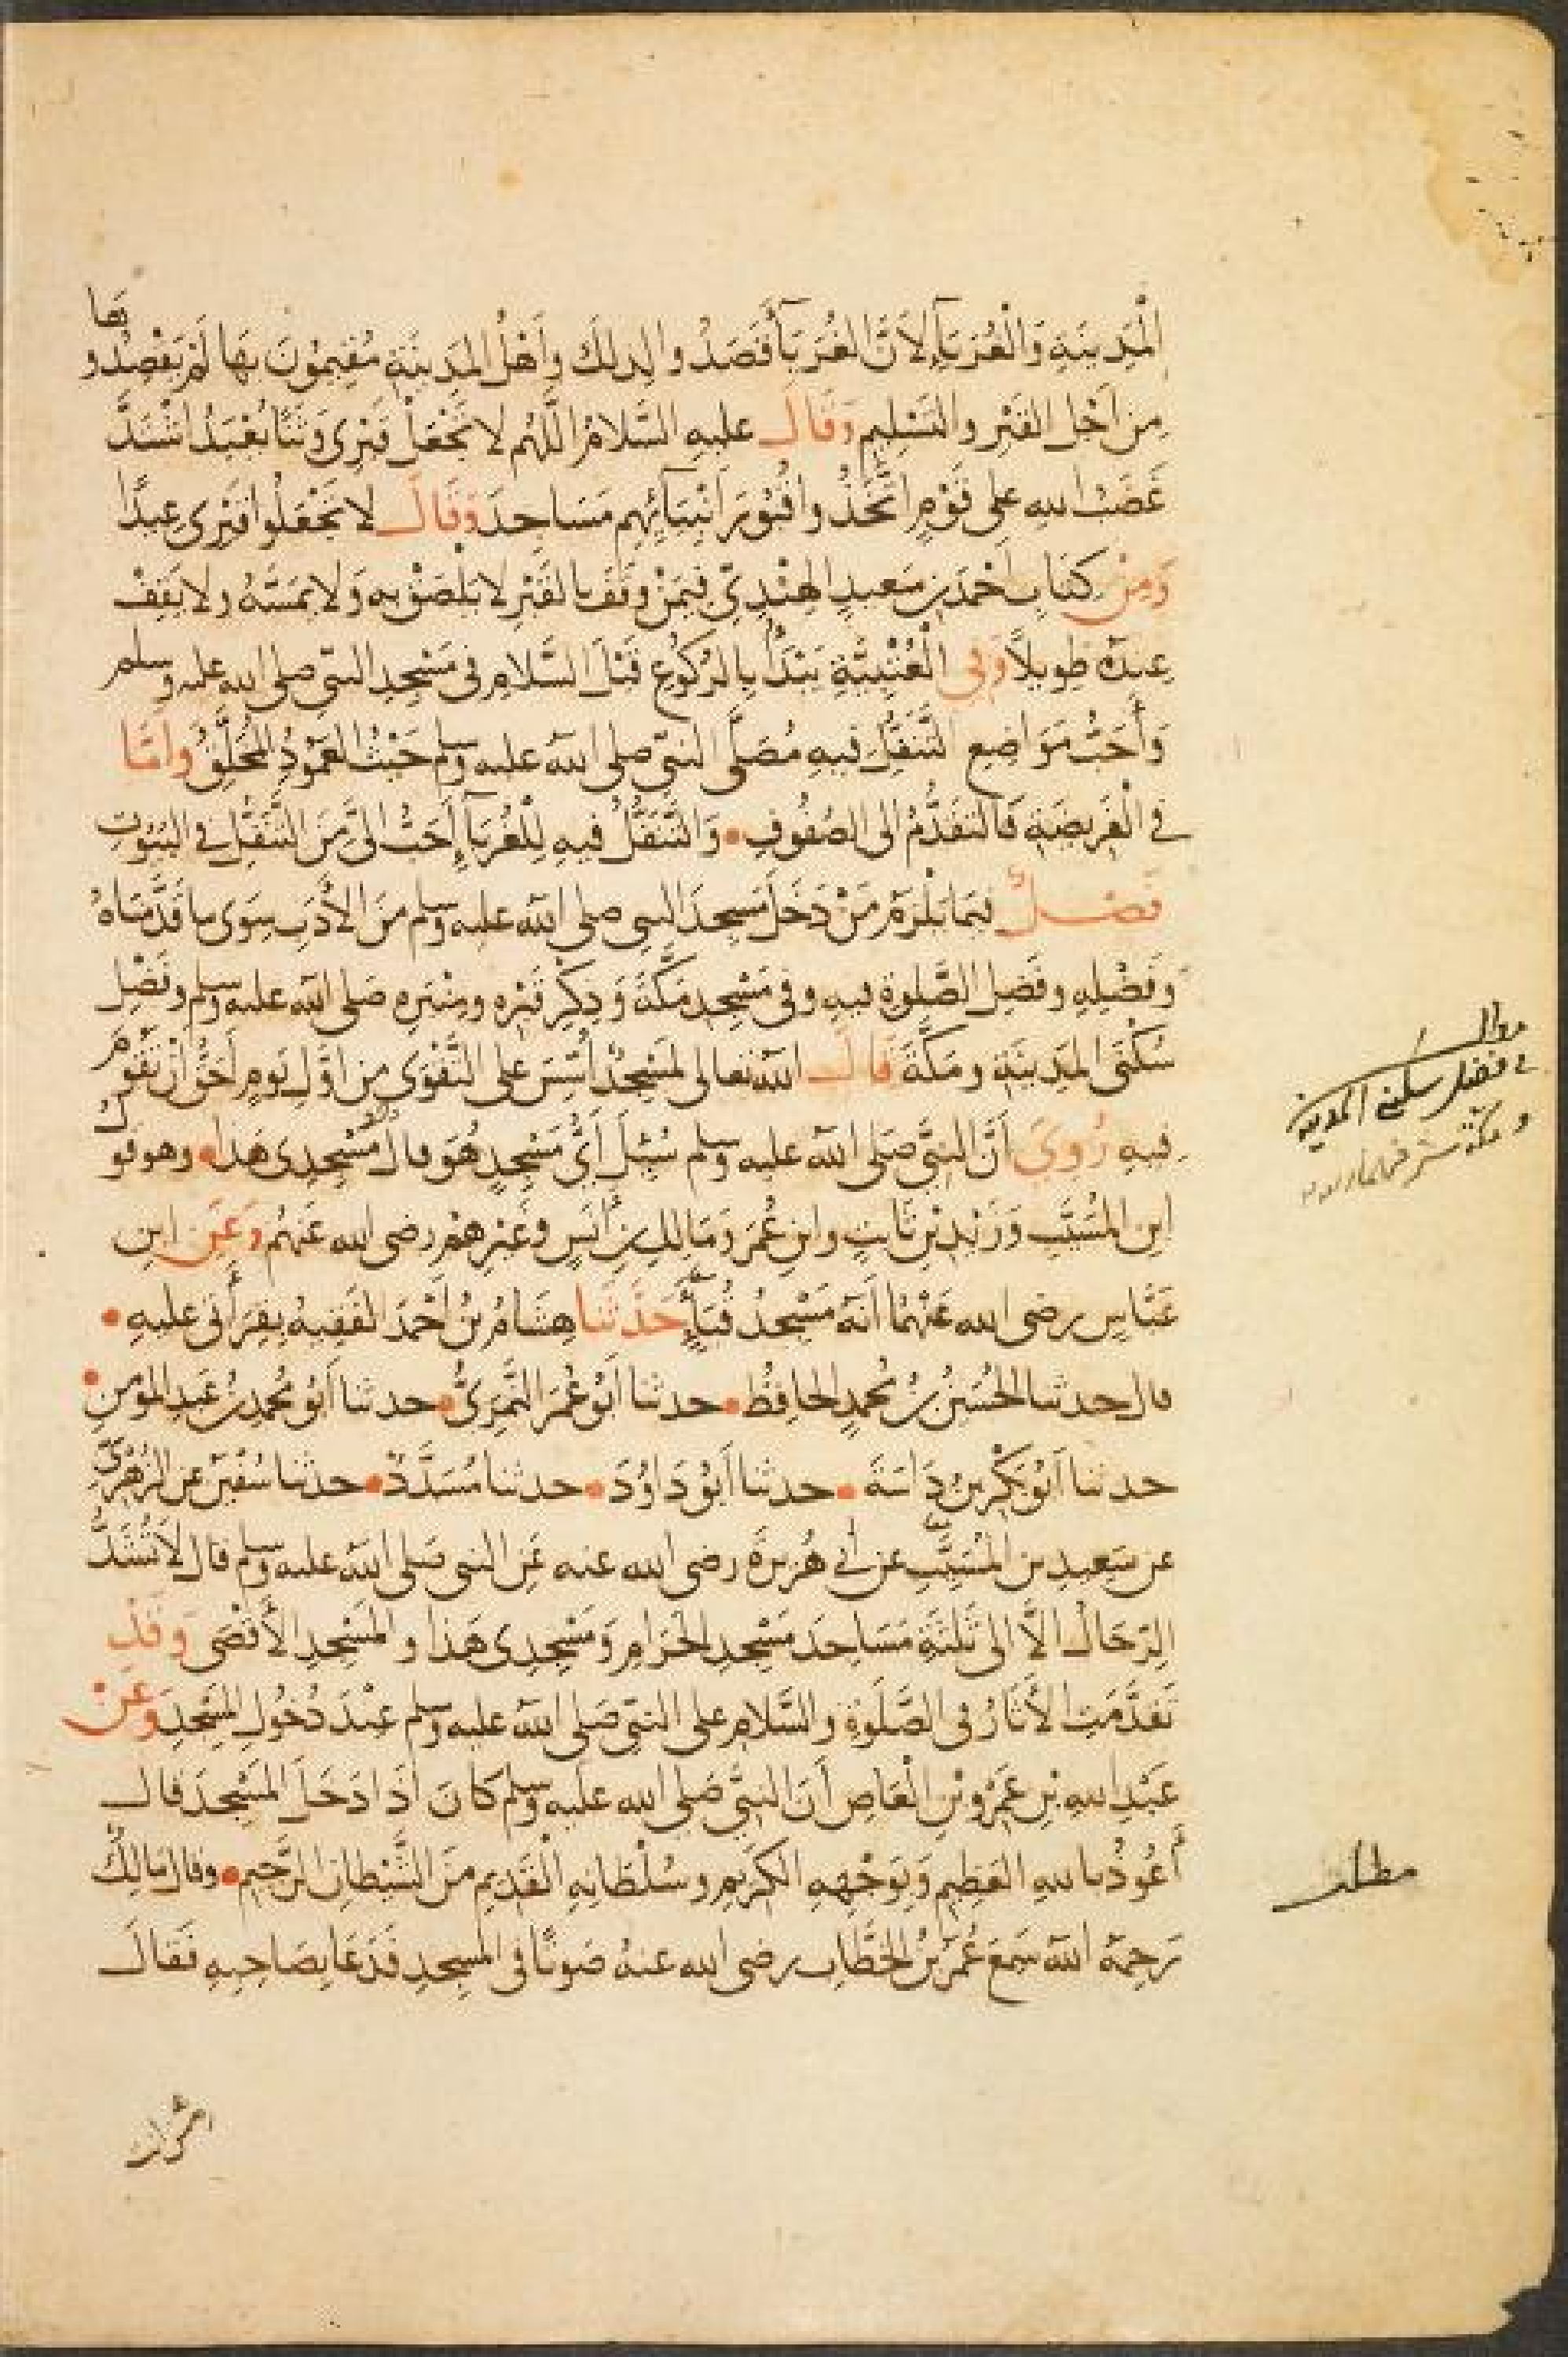 الْمَدِينَةِ وَالْغُرَبَآءِ لاَنَّ الغُرَبَآءَ قَصَدُوا لِذلكَ وأَهْلُ المَدِينَةِ مُقِيمُونَ بِهَا لَمْ يَقْصِدُوهَا
مِن اَجْلِ القَبْرِ والتَسْلِيمِ وَقَالَ عليهِ السَّلامُ اللَّهُم لا تَجْعَلْ قَبْرِى وَثَنًا يُعْبَدُ اشْتَدَّ
غَضَبُ اللهِ على قَوْمٍ اتَّخَذُوا قُبُورَ اَنْبِيَآئِهِم مَسَاجِدَ وَقَالَ لا تَجْعَلُوا قَبْرِى عِيدًا
وَمِنْ كِتَابِ اَحْمَدَ بن سَعيدٍ الهِنْدِيّ فِيمَنْ وَقَفَ بالقَبْرِ لا يَلْصَقْ بهِ وَلا يَمَسَّهُ ولا يَقِفْ
عِندَهُ طَوِيلاً وَفِي الْعُتْبِيَّةِ يَبْدَأُ بِالرُكُوعِ قَبْلَ السَّلامِ فى مَسْجِدِ النبّى صلى الله عليه وسلم
وَأَحَبُّ مَوَاضِعِ التَّنَفُّلِ فيهِ مُصَلَّى النبىّ صلى الله عليه وسلم حَيْثُ العَمُودُ المُخَلَّقُ وامَّا
في الْفَرِيضَةِ فَالتَقَدُّمُ الى الصُفُوفِ • وَالتَّنَفُّلُ فيهِ لِلْغُرَبَآءِ أَحَبُّ الىَّ مِنَ التَّنَفُّلِ في البُيُوتِ
فَصْلٌ فيمَا يَلْزَمُ مَنْ دَخَلَ مَسجِدَ النبى صلى الله عليه وسلم مِنَ الأدَبِ سِوَى ما قَدَّمنَاهُ
وَفَضْلِهِ وفَضْلِ الصَّلوةِ فيهِ وفى مَسْجِدِ مَكَّةَ وَذِكْرِ قَبْرِهِ ومِنْبَرِهِ صَلى الله عليه وسلم وفَضْلِ
سُكْنَى المَدِينَةِ ومَكَّةَ قَالَ اللهُ تعالى لمَسْجِدٌ أُسِّسَ على التَّقْوَى مِن اوّلِ يَومٍ اَحَقُّ اَنْ تَقُوْمَ
فِيهِ رُوِيَ اَنَّ النبيَّ صَلى الله عليه وسلم سُئِلَ أَىُّ مَسْجِدٍ هُوَ قالَ مَسْجِدِى هَذا • وهو قولُ
ابنِ المُسَيَّبِ وَزَيْدِ بْنِ ثَابتٍ وابنِ عُمَرَ وَمَالِكِ بنِ أَنَسٍ وغَيْرِهِمْ رضى الله عَنهُم وَعَنِ ابنِ
عَبَّاسٍ رضى الله عَنْهُمَا اَنَهُ مَسْجِدُ قُبَآءٍ حَدّثَنا هِشَامُ بنُ اَحْمَدَ الفَقِيهُ بِقِرَأَتى عليهِ •
قال حدثنا الحُسَيْنُ بنُ مُحمدٍ الحافِظُ • حدثنا اَبُو عُمَرَ النَّمَرِىُّ • حدثنا اَبُو مُحمدِ بنُ عَبدِ المُومنِ •
حدثنا اَبُو بَكْرِ بنُ دَاسَةَ • حدثنا اَبُو دَاوُدَ • حدثنا مُسَدَّدٌ • حدثنا سُفْيَنُ عن الزُهْرِىّ
عن سَعِيدِ بنِ المُسَيَّبِ عن ابي هُرَيرةَ رضى الله عنه عَنِ النبى صَلى الله عليه وسلم قال لاَ تُشَدُّ
الرّحَالُ الاَّ الى ثَلثَةِ مَسَاجِدَ مَسْجِدِ الحَرَامِ وَمَسْجِدِى هَذا والمَسْجِدِ الأَقْصَى وَقَدْ
تَقَدَّمَتِ الأَثَارُ فى الصَّلوةِ والسَّلامِ على النبىّ صَلى الله عليه وسلم عِنْدَ دُخُولِ المَسْجِدِ وَعَنْ
عَبْدِ اللهِ بنِ عَمْرِو بْنِ الْعَاصِ اَنَّ النبيَّ صَلى الله عليه وسلم كانَ اذَا دَخَلَ المَسْجِدَ قالَ
أَعُوذُ باللهِ العَظِيمِ وَبِوَجْهِهِ الكَرِيمِ وسُلْطَانِهِ الْقَدِيمِ مِنَ الشَّيْطَانِ الرَّجِيمِ • وقال مَالِكٌ
رَحِمَهُ اللهُ سَمِعَ عُمَرُ بنُ الخَطَّابِ رضى الله عنهُ صَوتًا فى المسجِدِ فَدَعَا بِصَاحِبِهِ فَقَالَ
في فضل سكنى المدينة
ومكة
مطلب